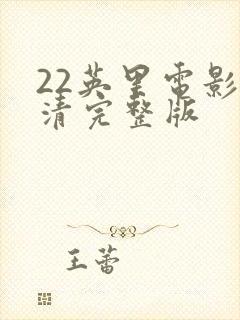 22英里电影
清完整版
王蕾